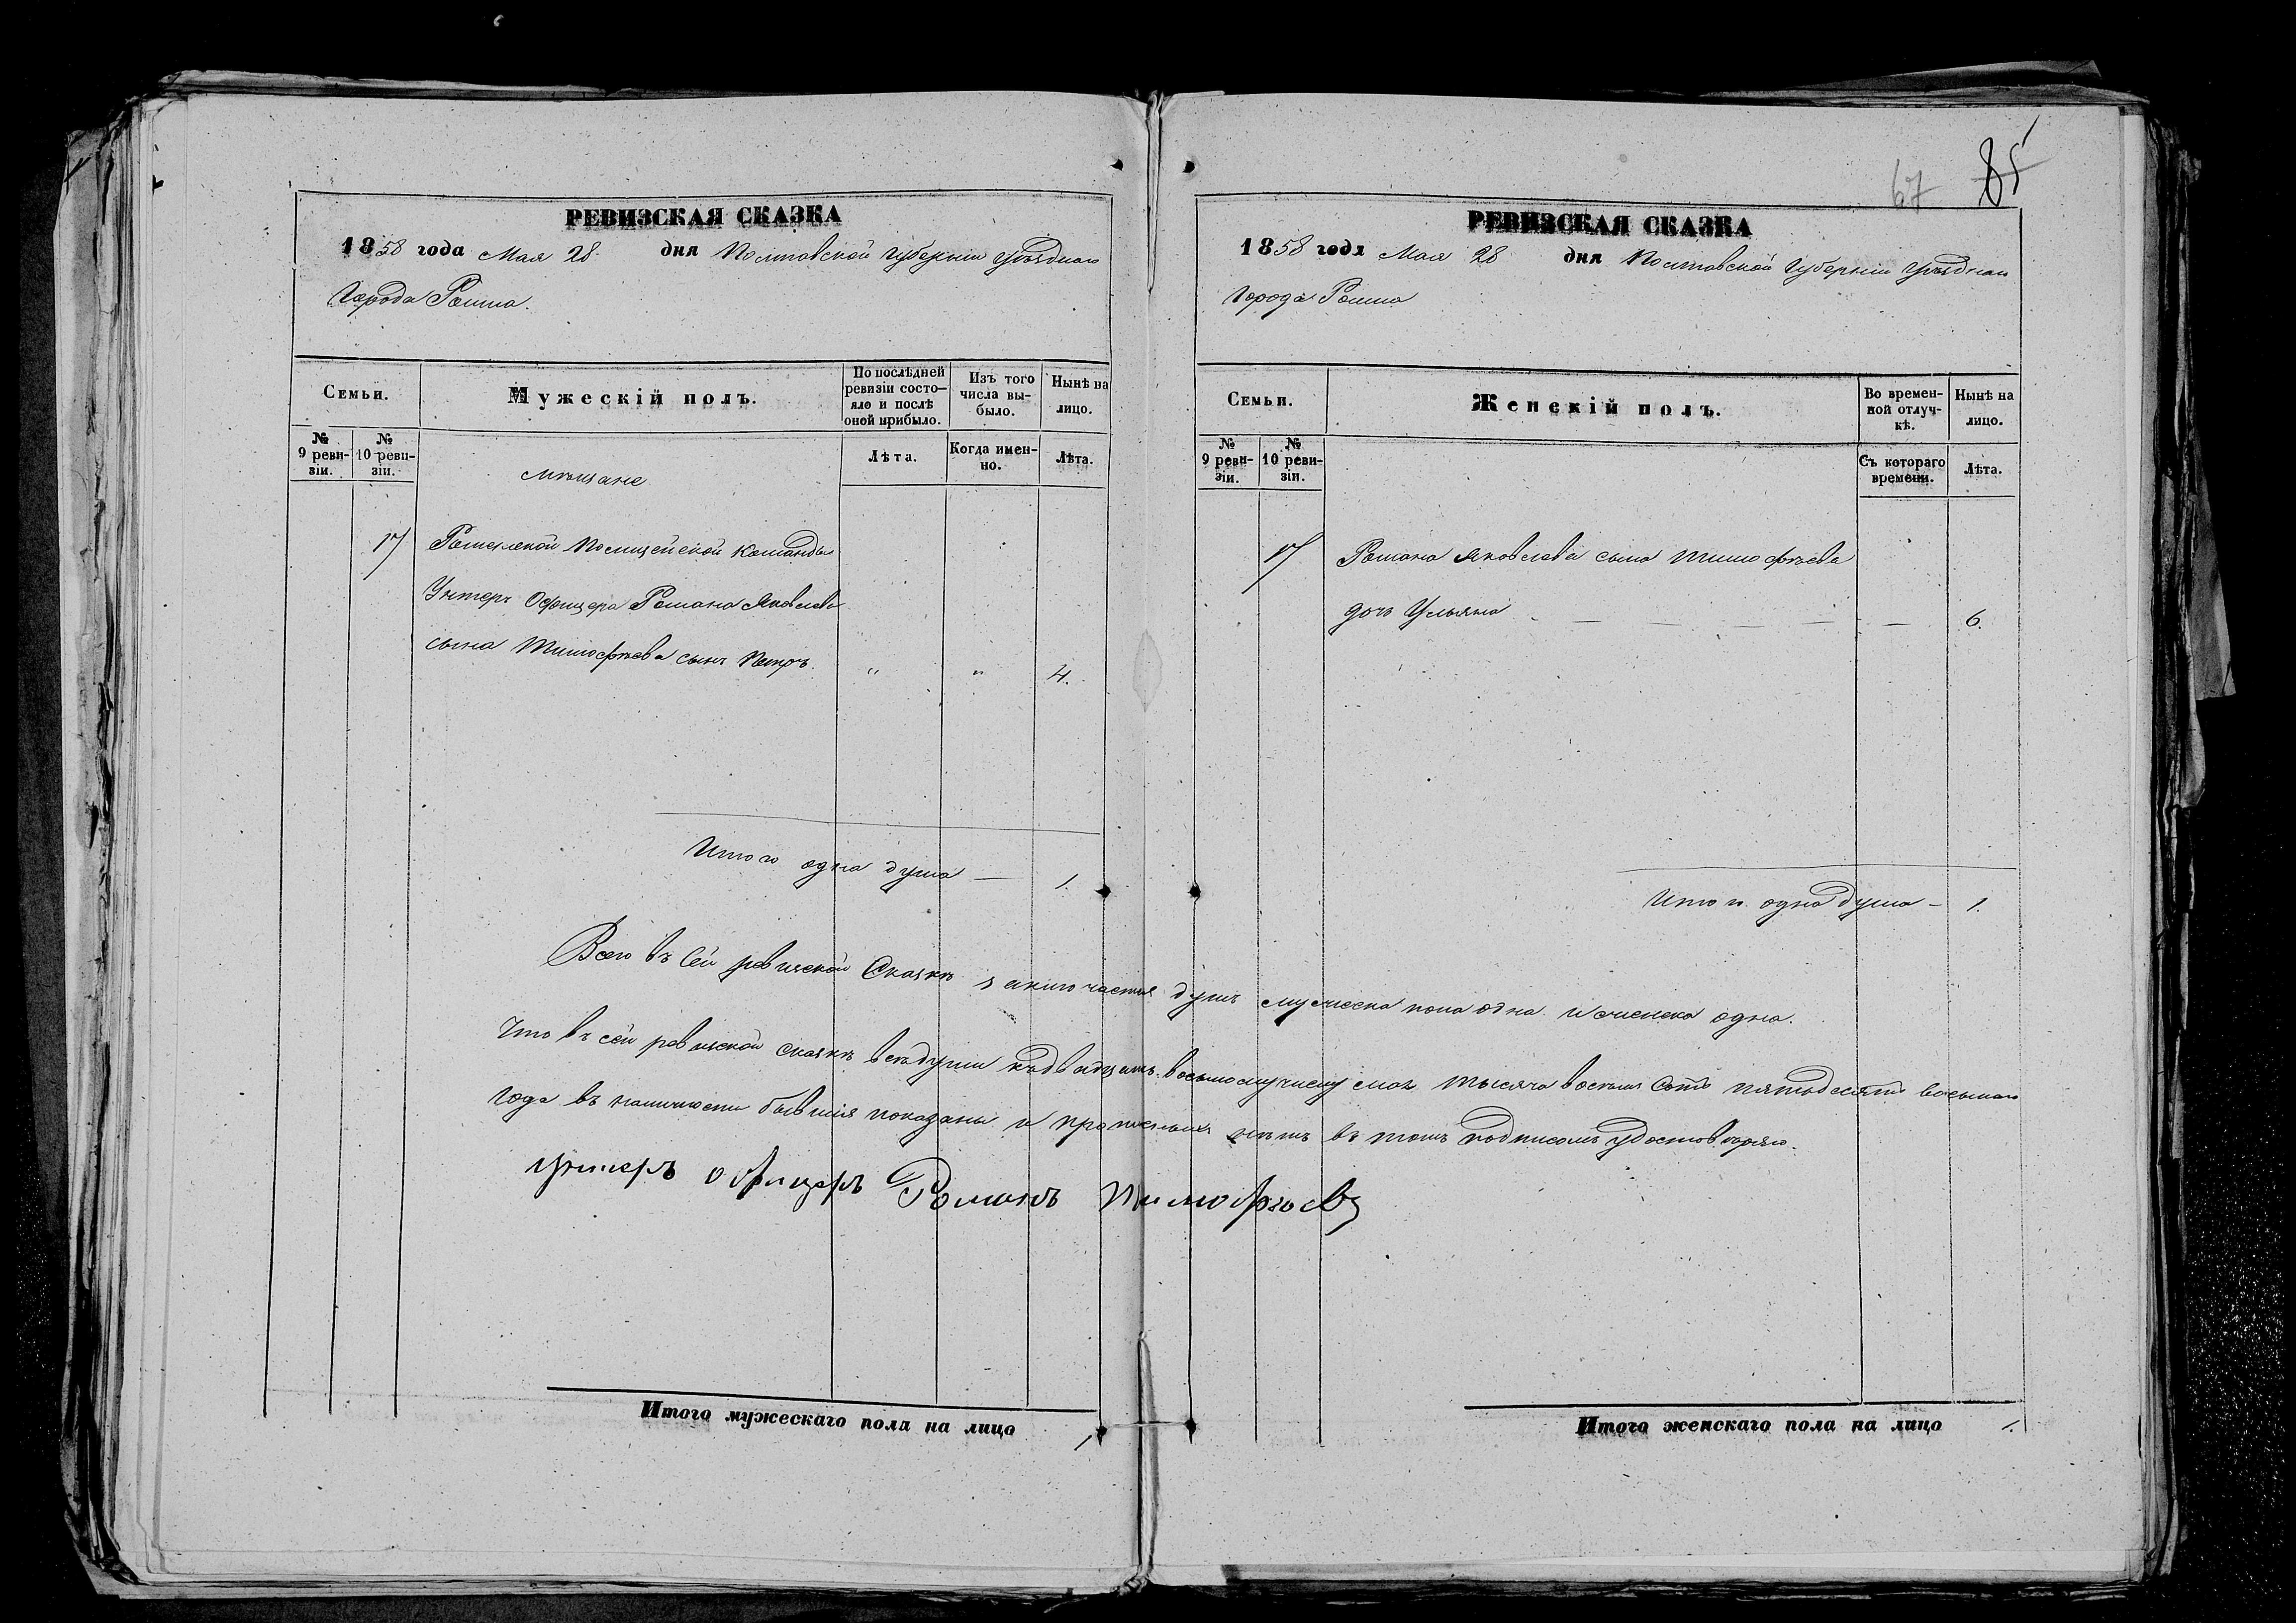 67 85
РЕВИЗСКАЯ СКАЗКА
1858 года Мая 28. дня Полтавской Губерніи Уѣзднаго
Города Ромна.
Семьи.
Мужескій полъ.
По послѣдней ревизіи состо-
яло и послѣ оной прибыло.
Изъ того числа вы-
было.
Нынѣ на лицо.
№ 9 реви-
зіи.
№ 10 реви-
зіи.
Лѣта.
Когда имен-
но.
Лѣта.
мѣщане
17 Роменской Полицейской Команды
Унтеръ Офицера Романа Яковлева
сына Тимофѣева сынъ Петръ. " " 4.
Итого одна душа — 1.
РЕВИЗСКАЯ СКАЗКА
1858 года Мая 28 дня Полтавской Губерніи Уѣзднаго
Города Ромна
Семьи.
Женскій полъ.
Во времен-
ной отлуч-
кѣ.
Нынѣ на лицо.
№ 9 реви-
зіи.
№ 10 реви-
зіи.
Съ котораго времени.
Лѣта.
17 Романа Яковлева сына Тимофѣева
дочь Ульяна — — — — — 6.
Итого одна душа — 1.
Всего въ сей ревизской Сказкѣ заключается душъ мужеска пола одна и женска одна.
Что въ сей ревизской сказкѣ всѣ души къ двадцать восьмому числу мая тысяча восемь сотъ пятьдесятъ восьмаго
года въ наличности бывшія показаны и прописныхъ нѣтъ въ томъ подписомъ удостовѣряю.
унтеръ офицеръ Романъ Тимофѣевъ
Итого мужескаго пола на лицо 1
Итого женскаго пола на лицо 1.